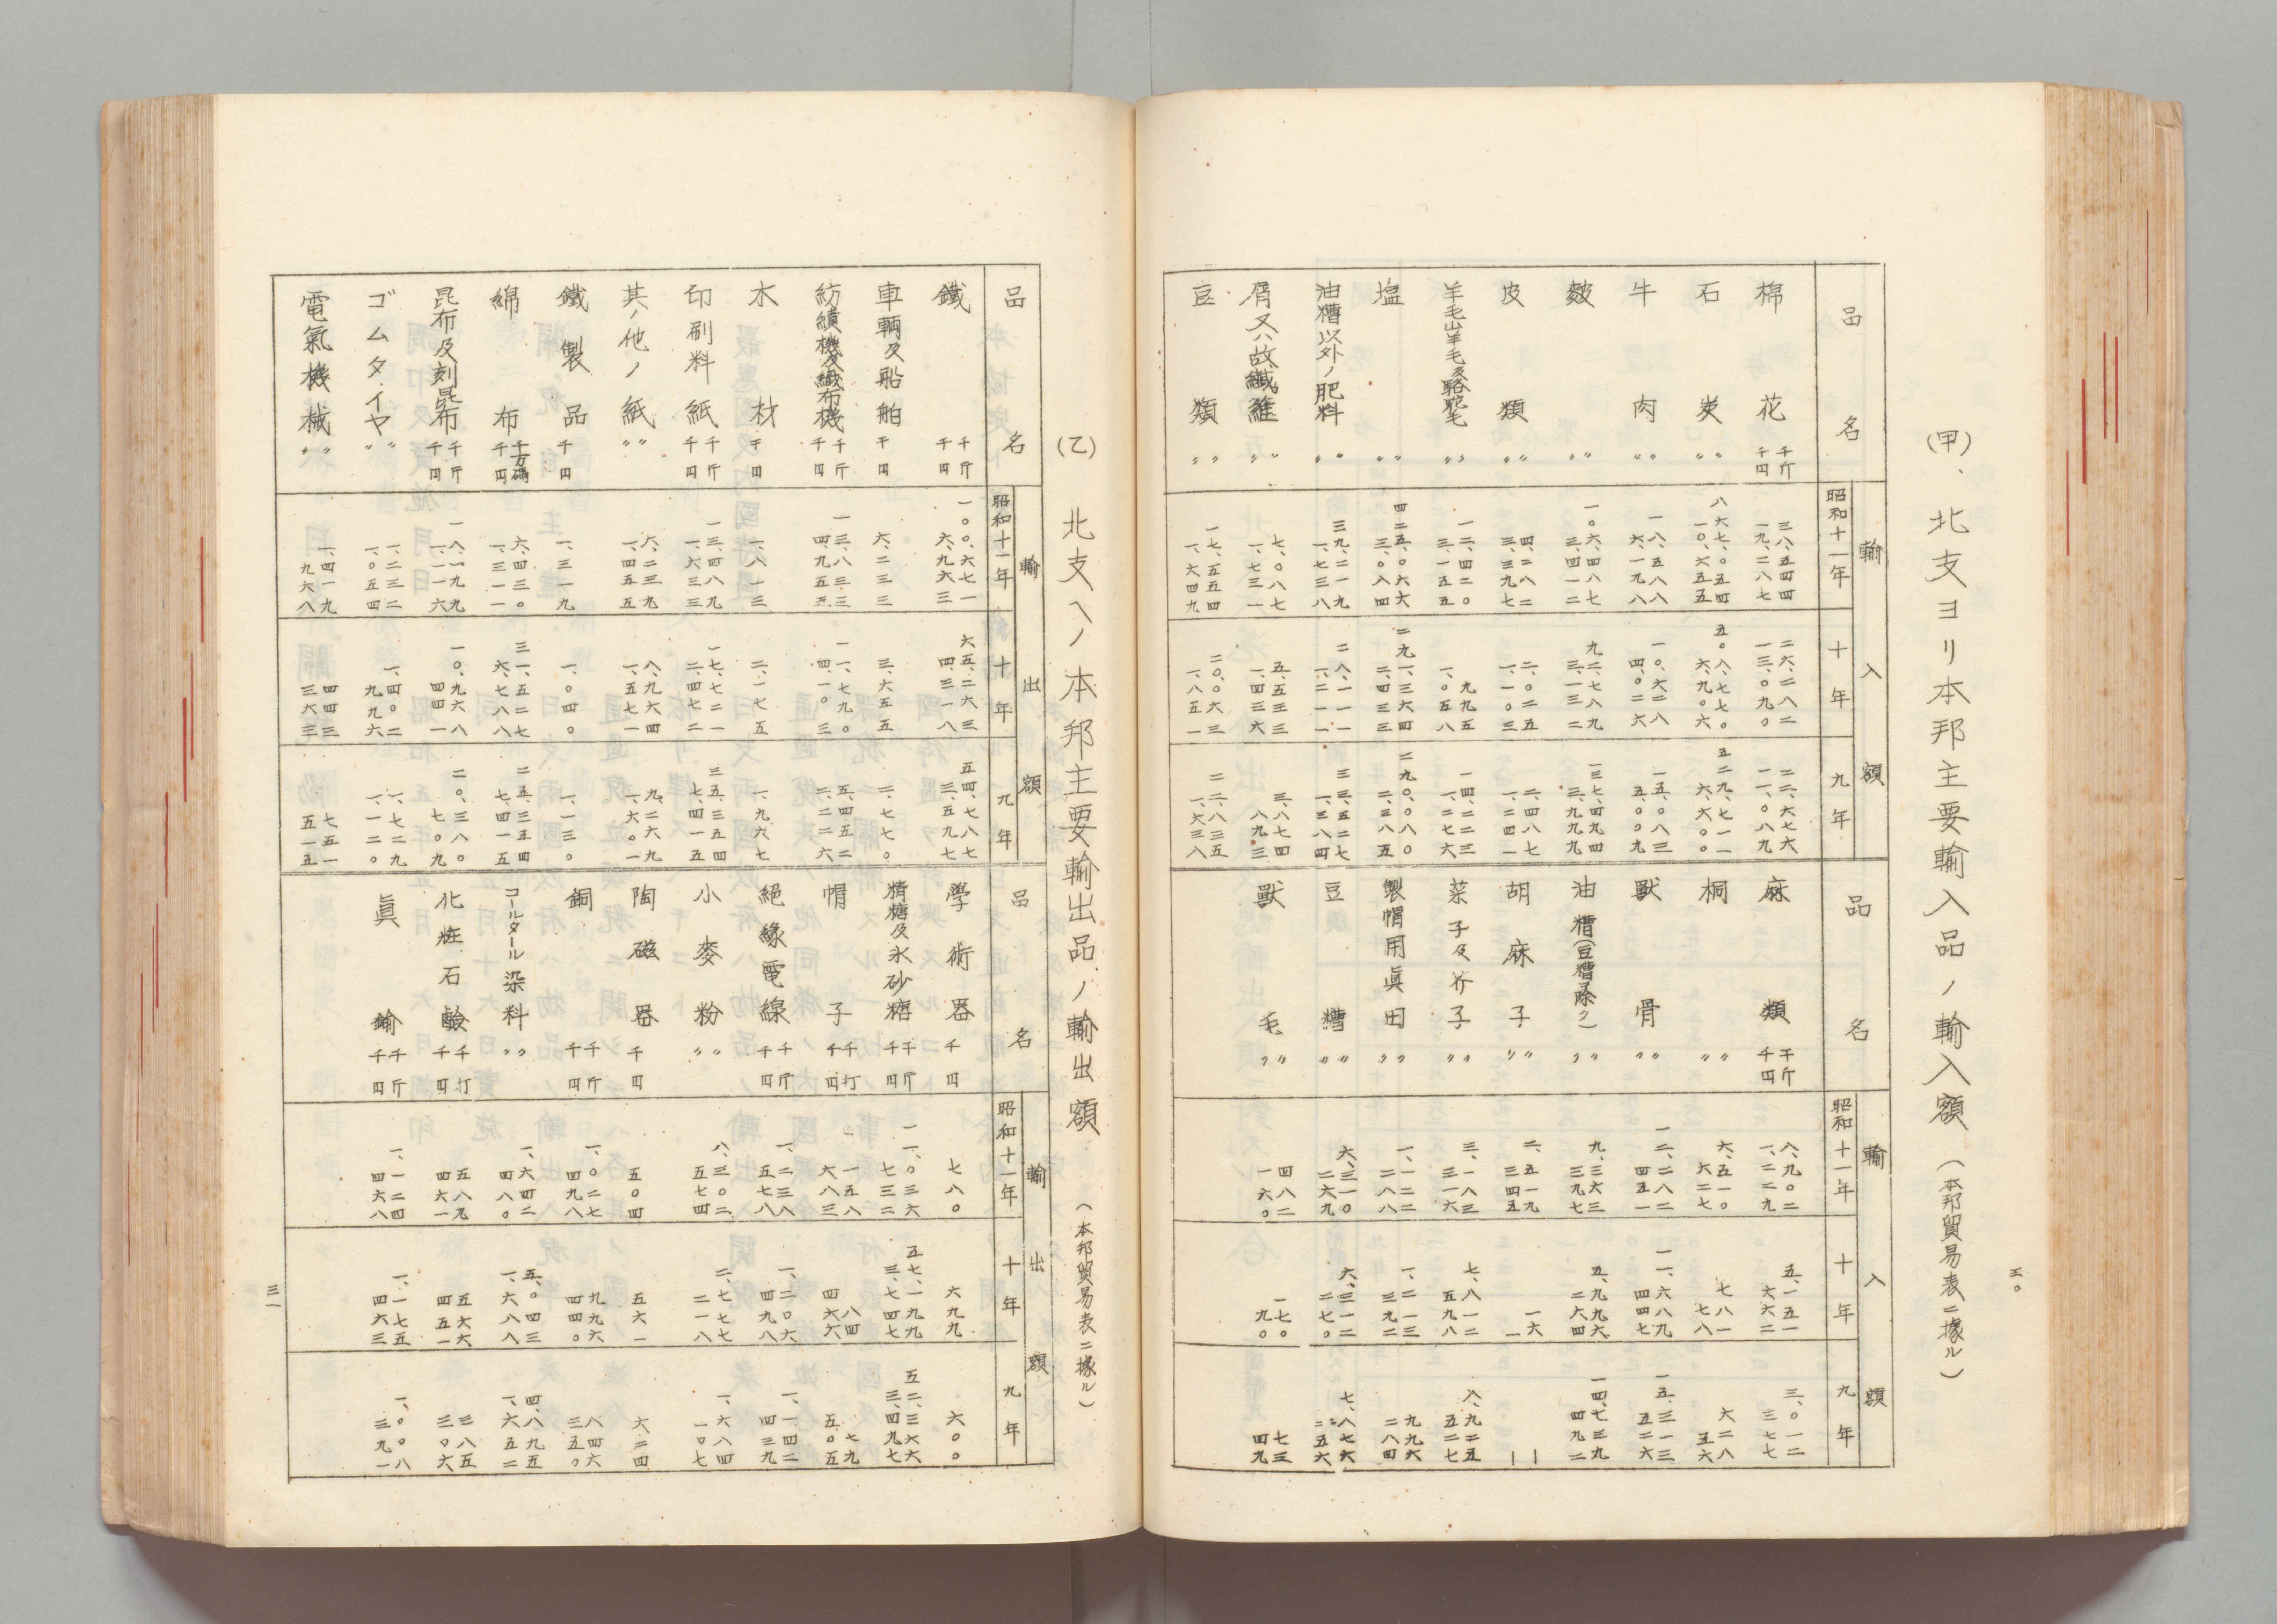 三〇
(甲)、北支ヨリ本邦主要輸入品ノ輸入額(本邦貿易表ニ據ル)
品名 輸入額
昭和十一年 十年 九年
棉花 千斤 三八、五四四 二六、二八二 二二、六七六
千円 一九、二八七 一三、〇九〇 一一、〇八九
石炭 〃 八六七、〇五四 五〇八、七七〇 五二九、七一一
〃 一〇、六五五 六、九〇六 六、六〇〇
牛肉 〃 一八、五八八 一〇、六二八 一五、〇八三
〃 六、一九八 四、〇二六 五、〇〇九
麬 〃 一〇六、四八七 九二、七八九 一三七、四九四
〃 三、四一二 三、一三二 三、九九九
皮類 〃 四、二八二 二、〇二五 二、四八七
〃 三、三九七 一、一〇三 一、二四一
羊毛山羊毛及駱駝毛 〃 一二、四二〇 九九五 一四、二二三
〃 三、一五五 一、〇五八 一、二七六
塩 〃 四二五、〇六六 二九一、三六四 二九〇、〇八〇
〃 三、〇八四 二、四三三 二、三八五
油糟以外ノ肥料 〃 三九、二一九 二八、一一一 三三、五二七
〃 一、七三八 一、二一一 一、三八四
屑又ハ故繊維 〃 七、〇八七 五、五三三 三、八七四
〃 一、七三一 一、四三六 八九三
豆類 〃 一七、五五四 二〇、〇六三 二二、八三五
〃 一、六四九 一、八五一 一、六三八
品名 輸入額
昭和十一年 十年 九年
麻類 千斤 八、九〇二 五、一五一 三、〇一二
千円 一、二二九 六六二 三七七
桐 〃 六、五一〇 七八一 六二八
〃 六二七 七八 五六
獣骨 〃 一二、二八二 一一、六八九 一五、三一三
〃 四五一 四四七 五二六
油糟(豆糟ヲ除ク) 〃 九、三六三 五、九九六 一四、七三九
〃 三九七 二六四 四九二
胡麻子 〃 二、五一九 一六 ー
〃 三四五 一 ー
菜子及芥子 〃 三、一八三 七、八一二 八、九二五
〃 三一六 五九八 五二七
製帽用眞田 〃 一、一二二 一、二一三 九九六
〃 二八八 三九二 二八四
豆糟 〃 六、三一〇 六、三一二 七、八七六
〃 二六九 二七〇 二五六
獣毛 〃 四八二 一七〇 七三
〃 一六〇 九〇 四九
(乙) 北支ヘノ本邦主要輸出品ノ輸出額(本邦貿易表ニ據ル)
品名 輸出額
昭和十一年 十年 九年
鐵 千斤 一〇〇、六七一 六五、二六三 五四、七八七
千円 六、九六三 四、三一八 三、五九七
車輌及船舶 千円 六、二三三 三、六五五 二、七七〇
紡績機及織布機 千斤 一三、八三三 一一、七九〇 五、四五二
千円 四、九五五 四、一〇三 二、二二六
木材 千円 一、八一三 二、一七五 一、九六七
印刷料紙 千斤 一三、四八九 一七、七二一 三五、三五四
千円 一、六三三 二、四七二 七、四一五
其ノ他ノ紙 〃 六、二三九 八、九六四 九、二六九
〃 一、四五五 一、五七一 一、六〇一
鐵製品 千円 一、三一九 一、〇四〇 一、一三〇
綿布 千方碼 六、四三〇 三一、五二七 二五、三五四
千円 一、三一一 六、七八八 七、四一五
昆布及刻昆布 千斤 一八、一九九 一〇、九六八 二〇、三八〇
千円 一、一一六 四四一 七〇九
ゴムタイヤ 〃 一、二三二 一、四〇二 一、七二九
〃 一、〇五四 九九六 一、一二〇
電氣機械 〃 一、四一九 四四三 七五一
〃 九六八 三六三 五一五
品名 輸出額
昭和十一年 十年 九年
學術器 千円 七八〇 六九九 六〇〇
精糖及氷砂糖 千斤 一一、〇三六 五七、一九九 五二、三六六
千円 七三二 三、七四七 三、四九七
帽子 千打 一五八 八四 七九
千円 六八三 四六六 五〇五
絕緣電線 千斤 一、二三八 一、二〇六 一、一四二
千円 五七八 四九八 四三九
小麥粉 〃 八、三〇二 二、七七七 一、六八四
〃 五七四 二一八 一〇七
陶磁器 千円 五〇四 五六一 六二四
銅 千斤 一、〇二七 九九六 八四六
千円 四九八 四四〇 三五〇
コールタール染料 〃 一、六四二 五、〇四三 四、八九五
〃 四八〇 一、六八八 一、六五二
化粧石鹼 千打 五八九 五六六 三八五
千円 四六一 四五一 三〇六
眞鍮 千斤 一、一二四 一、一七五 一、〇〇八
千円 四六八 四六三 三九一
三一